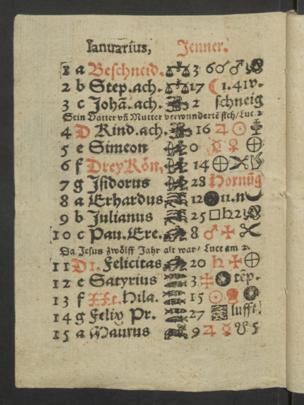 Januarius, Jenner.
1 a Beschneid. 3 6 ☌ ♂
2 b Step. ach. 17 ☾ 1.41v.
3 c Johā. ach. 2 schneig
Sein Vatter vñ Mutter verwunderte sich / Luc 2
4 D Kind. ach. 16 ♃ ☉
5 e Simeon 0 ☿ ♀ ⊕
6 f Drey Kön. 14 ⊕
7 g Isidorus 28 Hornūg
8 a Erhardus 12 11.n
9 b Julianus 25 □ ♄ 21
10 c Pau. Ere. 8 ♂
Da Jesus zwölff Jahr alt war / Luce am 2.
11 D1. Felicitas 20 ♄ ⊕
12 e Satyrius 3 tēp.
13 f XX.t. Hila. 15 ☉
14 g Felix Pr. 27 lufft!
15 a Maurus 9 ♃ ☿ 5